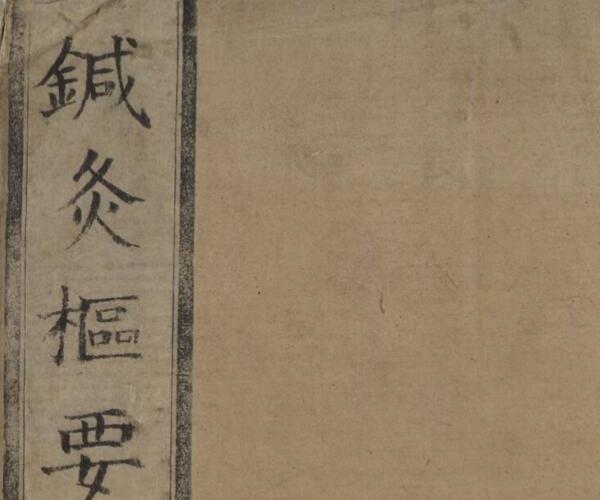 鍼灸樞要